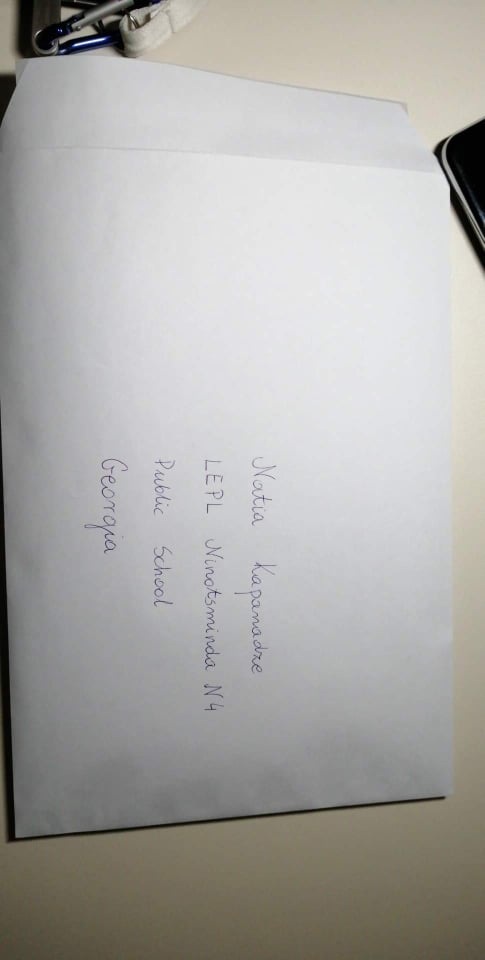 Natia Kapanadze
LEPL Ninotsminda N4
Public School
Georgia